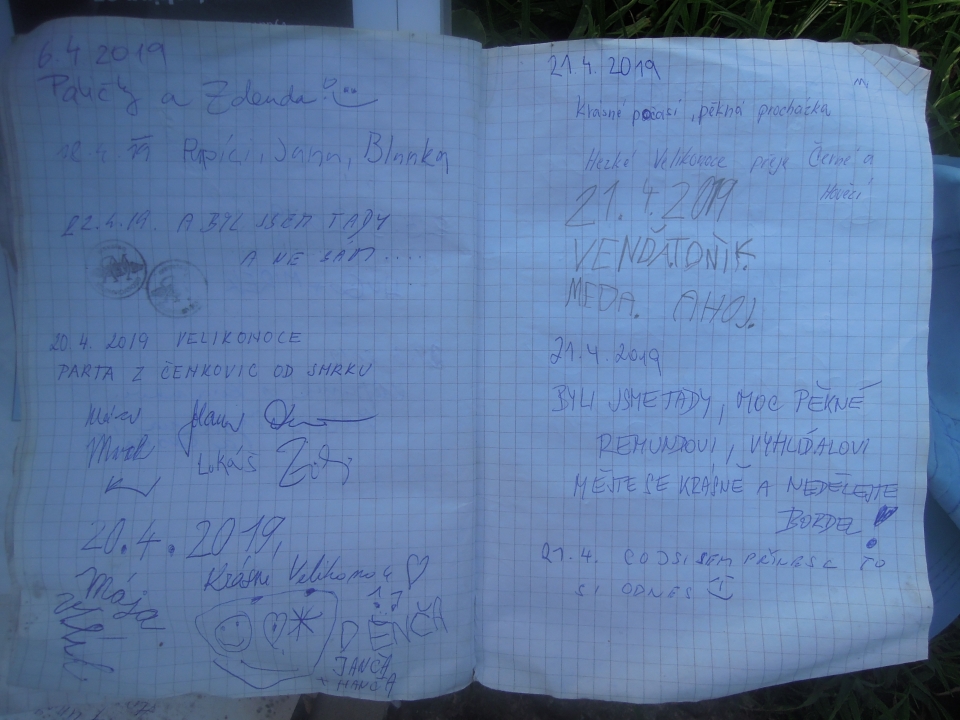 6.4 2019
a Zdenda
Pepíci, Jana, Blanka
22.4.19. A BYL JSEM TADY
A NE SÁM....
20.4. 2019 VELIKONOCE
PARTA Z ČENKOVIC OD SMRKU
Lukáš
20.4.2019,
Krásné Velikonoce
Mája
DENČA
JANČA
HANČA
21.4.2019
Krásné počasí, pěkná procházka
Hezké Velikonoce přeje Černé a
21.4.2019
MEDA. AHOJ.
21.4.2019
BYLI JSME TADY, MOC PĚKNÉ
REMUNDOVI, VYHLÍDALOVI
MĚJTE SE KRÁSNĚ A NEDĚLEJTE
BORDEL!
21.4. CO JSI SEM PŘINESL TO
SI ODNES